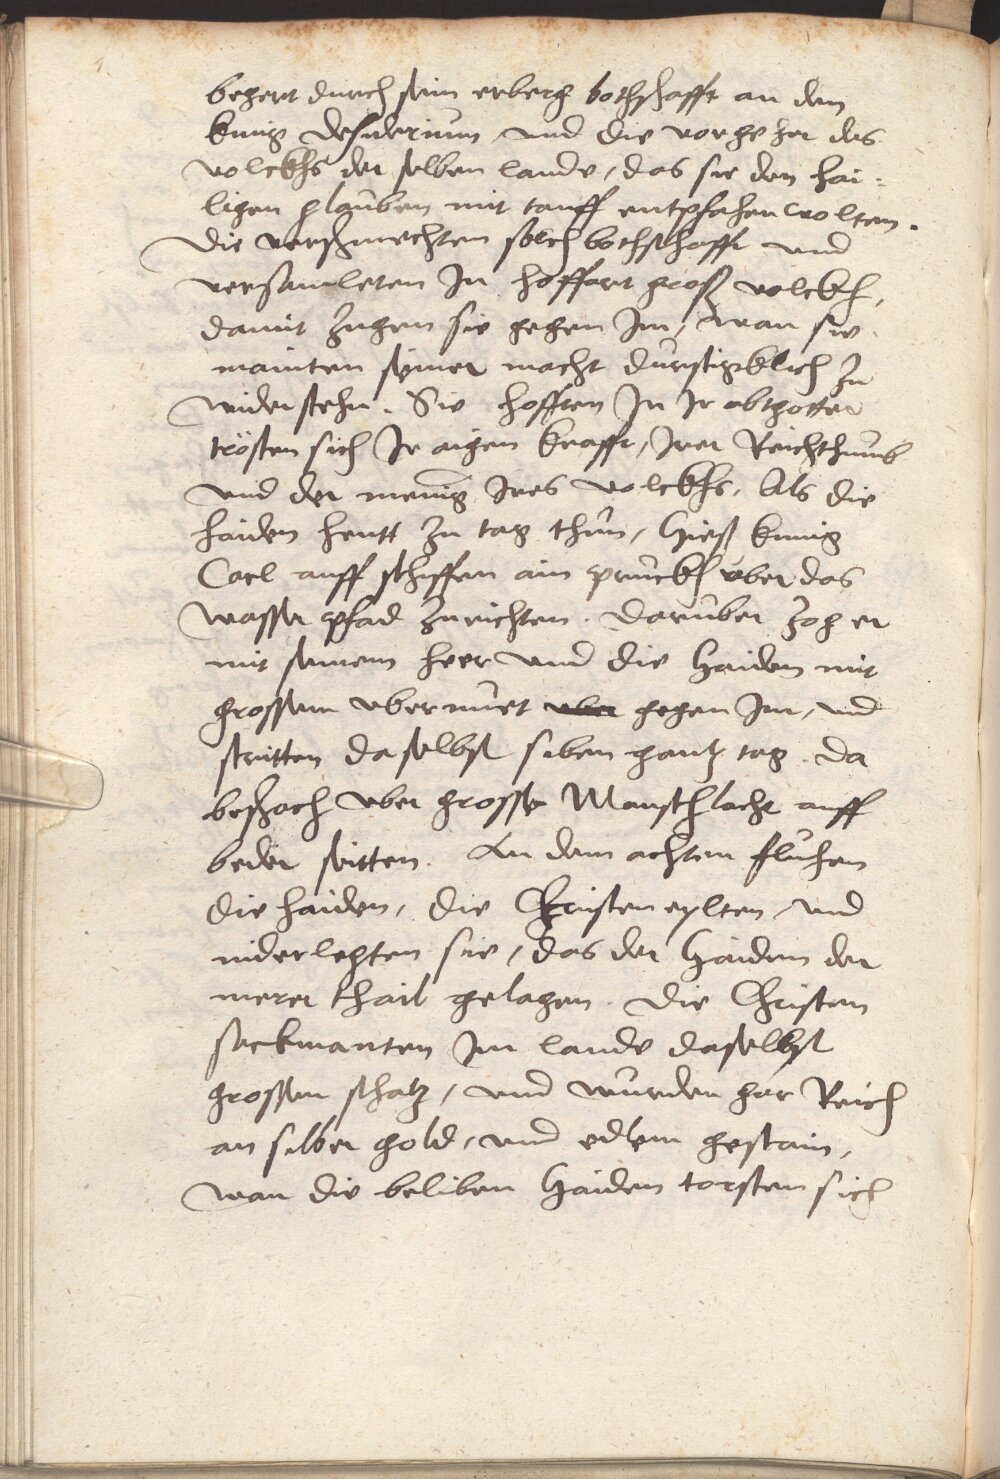 begert durch sein erberg bothschafft an den
kunig desiderium vnd die vorgeher des
volckhs der selben lande, das sie den hai=
ligen glauben mit tauff entpfahen wolten.
Die verschmechten solch bothschafft vnd
versamleten In hoffart groß volckh,
damit zugen sie gegen Im, wan sie
mainten seiner macht durstigklich zu
widerstehn. Sie hofften In Ir abtgotter
trösten sich Ir aigen krafft, Irer Reichthumb
vnd der menig Ires volckhs. Als die
haiden heutt zu tag thun, Hieß kunig
Carl auff schiffen ain pruckh vber das
wasser pfad zurichten. Daruber zog er
mit seinem heer vnd die Haiden mit
grossem vbermuet vber gegen Im, vnd
stritten daselbst siben gantz tag. Da
beschach vber grosse Manschlacht auff
beder seitten. An dem achten fluhen
die haiden, die Christen eylten vnd
niderlegten sie, das der Haiden der
merer thail gelagen. Die Christen
sackmanten Im lande daselbst
grossen schatz, vnd wurden gar Reich
an silber gold, vnd edlem gestain,
wan die beliben Haiden torsten sich